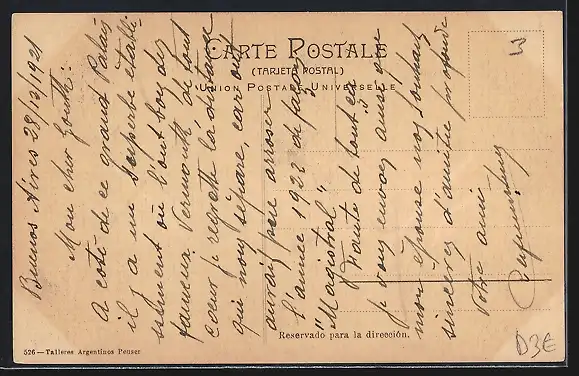 CARTE POSTALE
(TARJETA POSTAL)
UNION POSTALE UNIVERSELLE
Buenos Aires 28/12/1921
Mon cher
A coté de ce grand Palais
il y a un superbe établi-
ssement où l'ont boy des
fameux Vermouth de tout
coeur je regrette la distance
qui nous sépare, car on
aurais peu arroser
l'année 1922 de façon
"Magistral"
Faute de tout ça
je vous envoy aussi que
mon épouse nos souhaits
sinceres d'amitié profonde
Votre ami
Reservado para la dirección.
526 — Talleres Argentinos Peuser
D3E